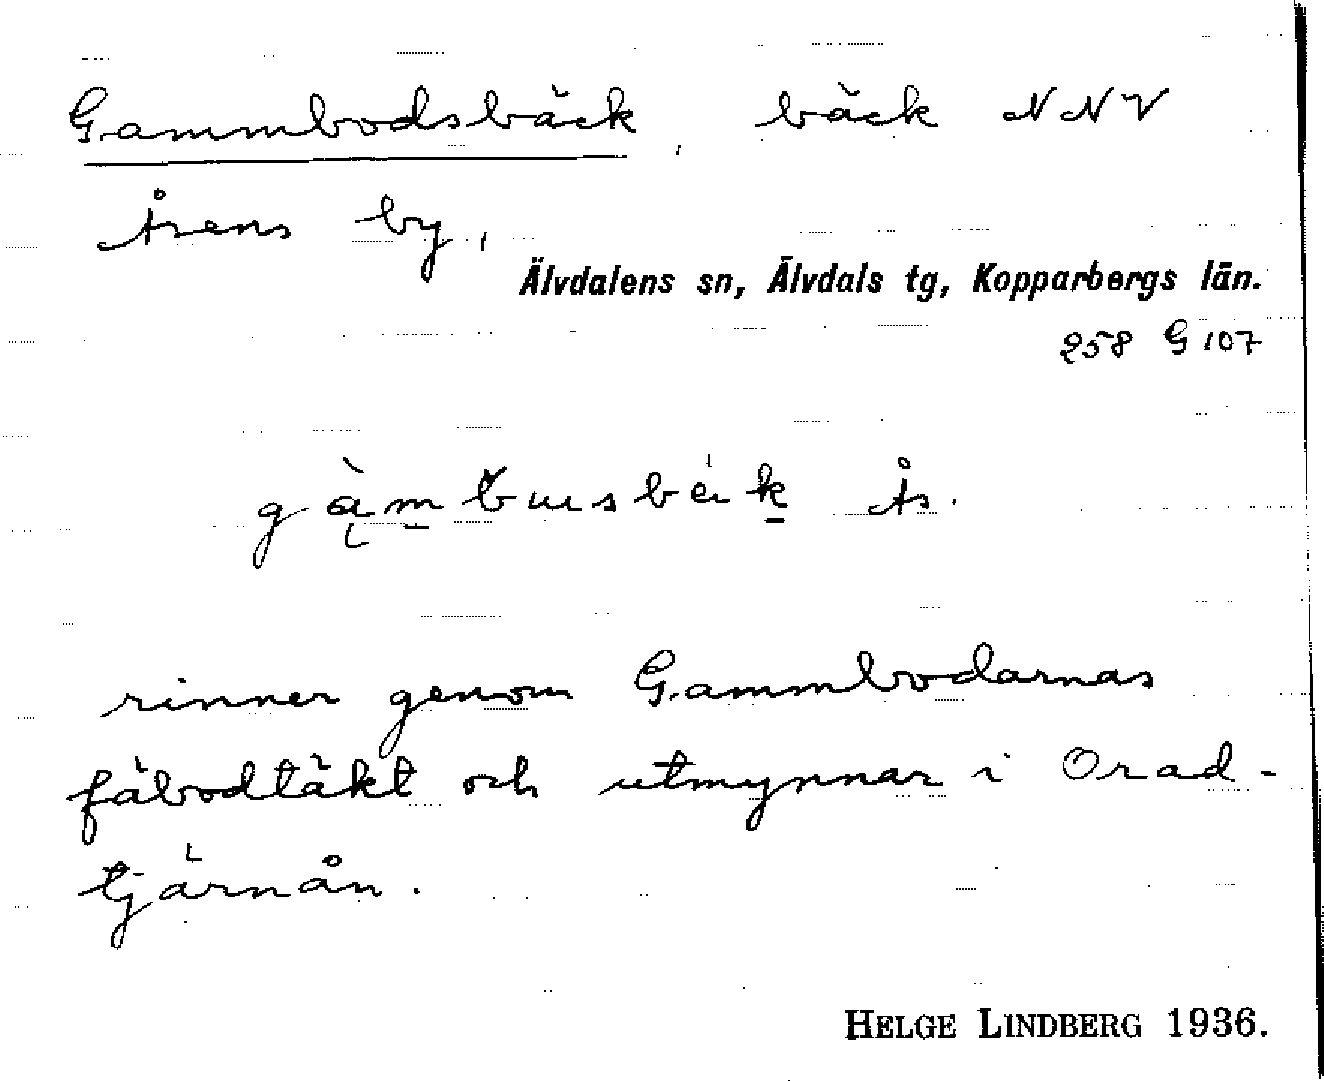 Gammbodsbäck, bäck NNV
Åsens by,
Älvdalens sn, Älvdals tg, Kopparbergs län.
258 G 107
Ås.
rinner genom Gammbodarnas
fäbodtäkt och utmynnar i Orad-
tjärnån.
HELGE LINDBERG 1936.